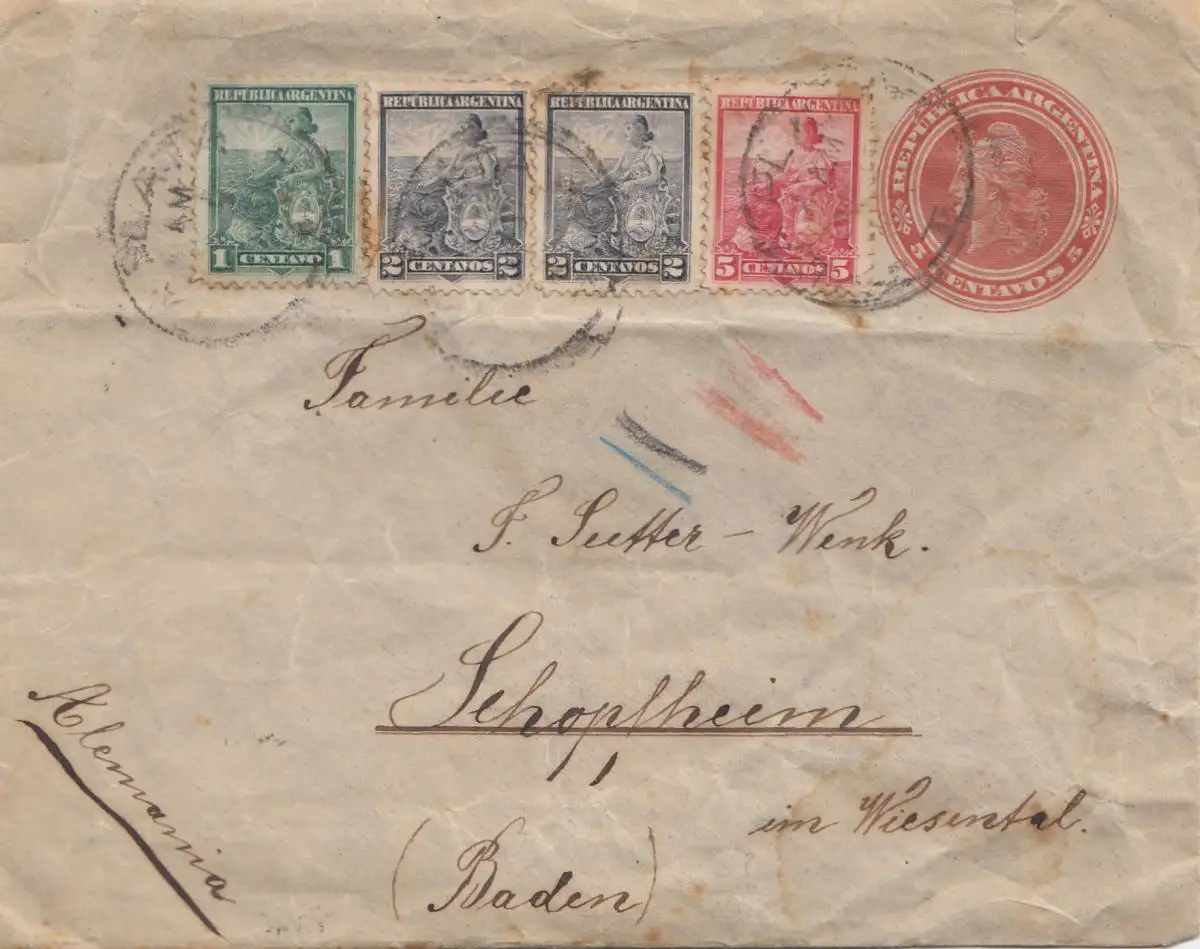 REPUBLICA ARGENTINA
1 CENTAVO 1
REPUBLICA ARGENTINA
2 CENTAVOS 2
REPUBLICA ARGENTINA
2 CENTAVOS 2
REPUBLICA ARGENTINA
5 CENTAVOS 5
REPUBLICA ARGENTINA
5 CENTAVOS 5
AM
Familie
F. Sutter - Wenk.
Schopfheim
im Wiesental.
(Baden)
Alemania